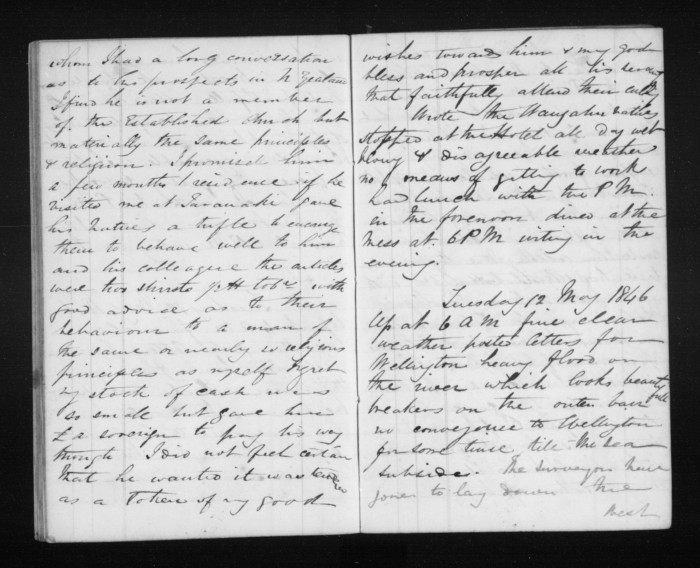 whom I had a long conversation
as to his prospects in N Zealand
I find he is not a member
of the Established Church but
materially the same principles
& religion. I promised him
a few months residence if he
visited me at Taranaki gave
his natives a trifle to encourage
them to behave well to him
and his colleague the articles
were two shirts ½ lb tobco with
good advice as to their
behaviour to a man of
the same or nearly so religious
principles as myself regret
my stock of cash was
so small but gave him
£1 sovereign to pay his way
through I did not feel certain
that he wanted it was tendered
as a token of my good
wishes toward him & may god
bless and prosper all his servants
that faithfully attend their call
Wrote the Wanganui
stopped at the Hotel all day wet
blowy & disagreeable weather
no means of getting to work
had lunch with the P.M.
in the forenoon dined at the
Mess at 6 PM writing in the
evening.
Tuesday 12 May 1846
Up at 6 AM fine clear
weather posted letters for
Wellington heavy flood on
the river which looks beautiful
breakers on the outer bar
no conveyance to Wellington
for some time till the sea
subside. The surveyors have
gone to lay down the
West